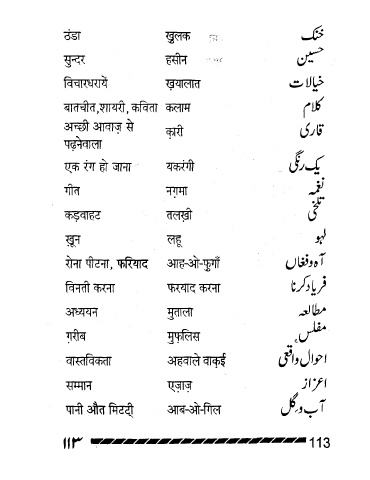 ठंडा खुलक خنک
सुन्दर हसीन حسین
विचारधरायें ख़यालात خیالات
बातचीत,शायरी, कविता कलाम کلام
अच्छी आवाज़ से पढ़नेवाला क़ारी قاری
एक रंग हो जाना यकरंगी یک رنگی
गीत नग़मा نغمہ
कड़वाहट तलख़ी تلخی
ख़ून लहू لہو
रोना पीटना, फरियाद आह-ओ-फुग़ाँ آہ و فغاں
विनती करना फरयाद करना فریاد کرنا
अध्ययन मुताला مطالعہ
ग़रीब मुफ़लिस مفلس
वास्तविकता अहवाले वाकई احوال واقعی
सम्मान एज़ाज़ اعزاز
पानी औत मिटटी आब-ओ-गिल آب و گل
۱۱۳ 113